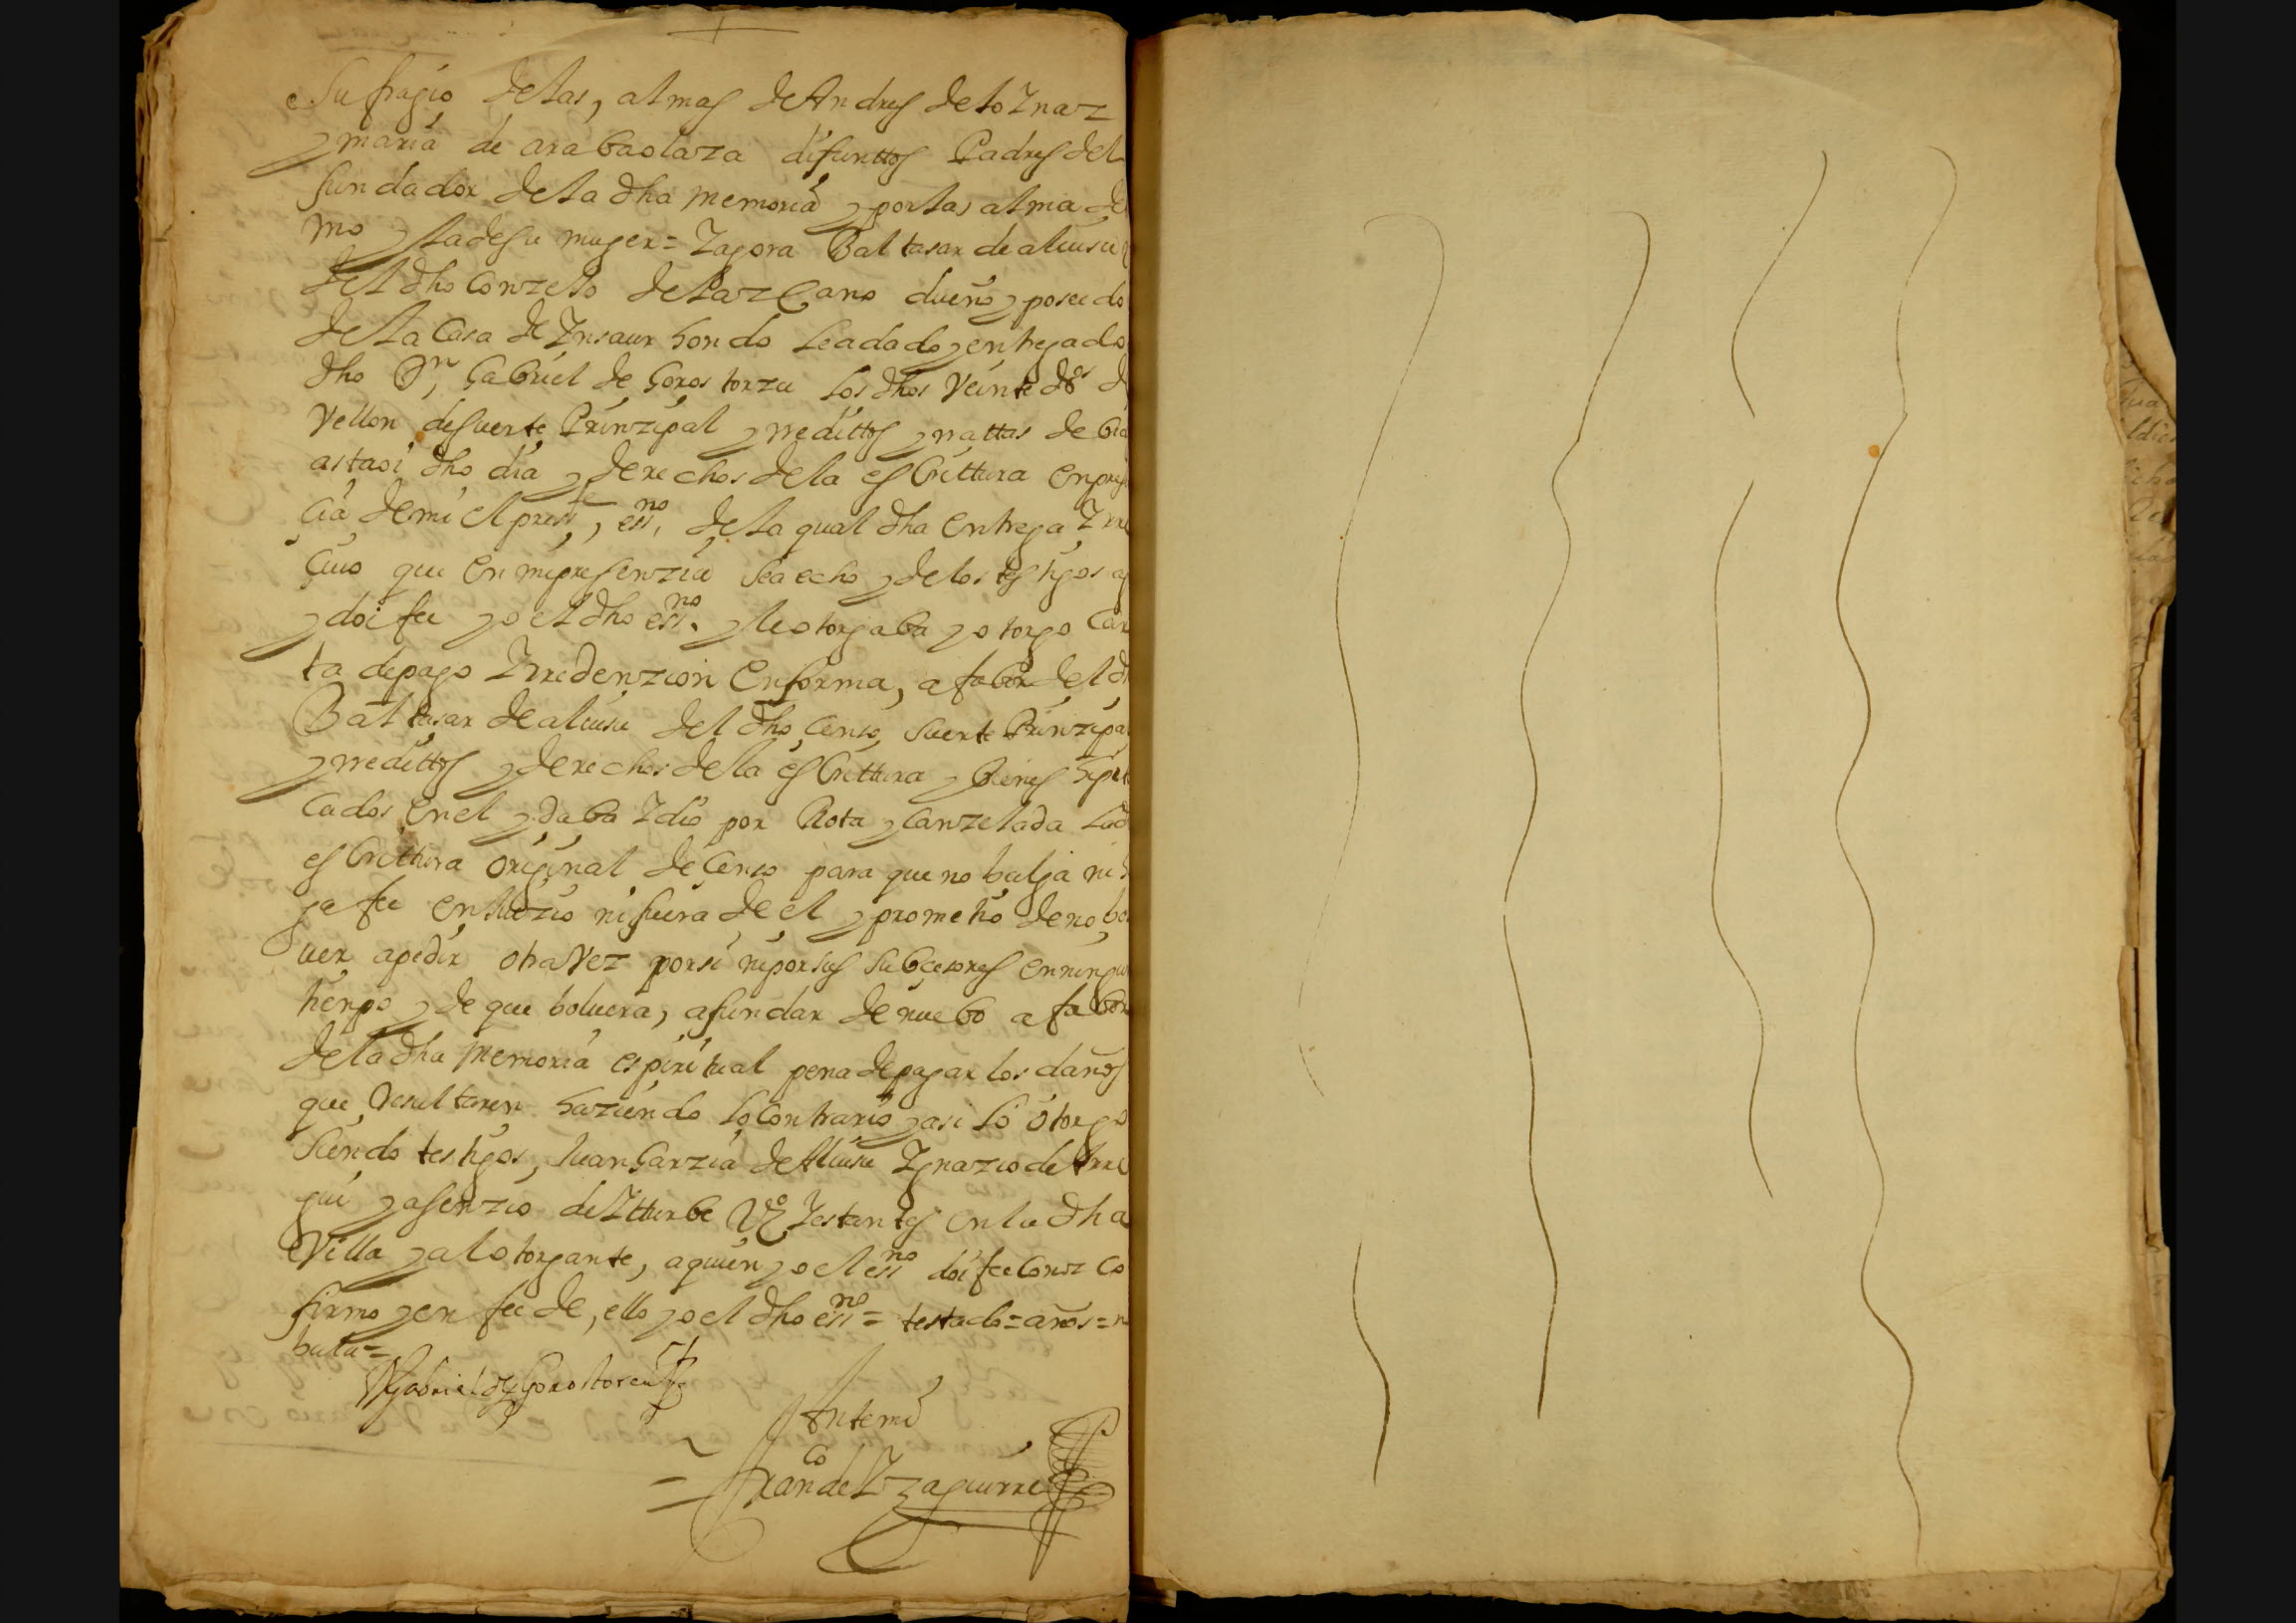 Sufragio de las, almas de Andres de loYnaz
y maria de arabaolaza difunttos Padres del
fundador de la dha memoria y por las alma de
mo y la de su muger = Y agora Baltasar de aluisu
del dho Conzejo de Lazcano dueño y poseedo
de la Casa de Ynsaurhondo le a dado y entregado
dho Sr, Gabriel de Gorostorzu los dhos Veinte ds d
Vellon de suerte Prinzipal y rredittos y rrattas de
asta oi dho dia y derechos de la esCrittura en pres
cia de mi el press.te, essno, de la qual dha entrega Y rre
Ciuo que en mi presenzia sea echo y de los testigos
y doi fee yo el dho essno. y le otorgaba y otorgo Car
ta de pago Y rredenzion en forma, a fabor del d
Baltasar de aluisu del dho Censo suerte Prinzipa
y rredittos y derechos de la esCrittura y Bienes hipote
Cados en el y daba Y dio por Rota y Canzelada la d
esCrittura original de Censo para que no balga ni
ga fee en Juizio ni fuera de el y prometio de no bo
uer a pedir otra Vez por si ni por sus subcesores en ningu
tienpo y de que boluera, a fundar de nuebo a fabor
de la dha memoria espiritual pena de pagar los daños
que Resultaren haziendo lo Contrario y asi lo otorgo
siendo testigos, Juan Garzia de Aluisu Ygnazio de Arre
gui y asenzio de Ytturbe Vos Y estantes en la dha
Villa y al otorgante, a quien yo el essno doi fee Conozco
firmo y en fee de, ello yo el dho essno = testado = años = n
bala =
Gabriel de Gorostorcu
Ante mi
Franco de Yzaguirre